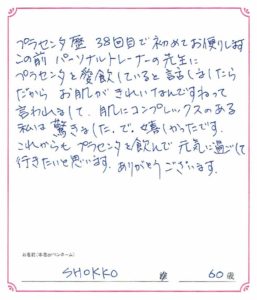 プラセンタ歴 38回目で初めてお便りします
この前 パーソナルトレーナーの先生に
プラセンタを愛飲していると話しましたら
だから お肌がきれいなんですねって
言われまして、肌にコンプレックスのある
私は驚きました。で、嬉しかったです。
これからもプラセンタを飲んで 元気に過ごして
行きたいと思います。ありがとうございます。
お名前(本名orペンネーム)
SHOKKO 様 60歳